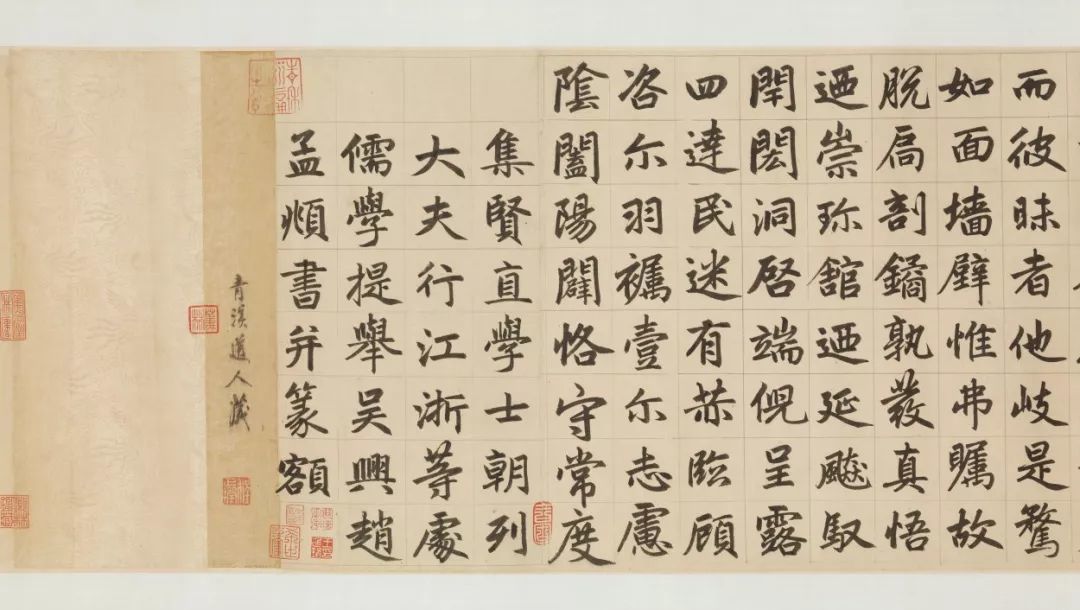 而彼昧者他岐是騖
如面墻壁惟弗矚故
脱扃剖鐍孰發真悟
迺崇珎舘迺延飈馭
閈閎洞啓端倪呈露
四達民迷有赫臨顧
咨尓羽襹壹尓志慮
陰闔陽闢恪守常度
集賢直學士朝列
大夫行江浙等處
儒學提舉吴興趙
孟頫書并篆額
青溪道人藏